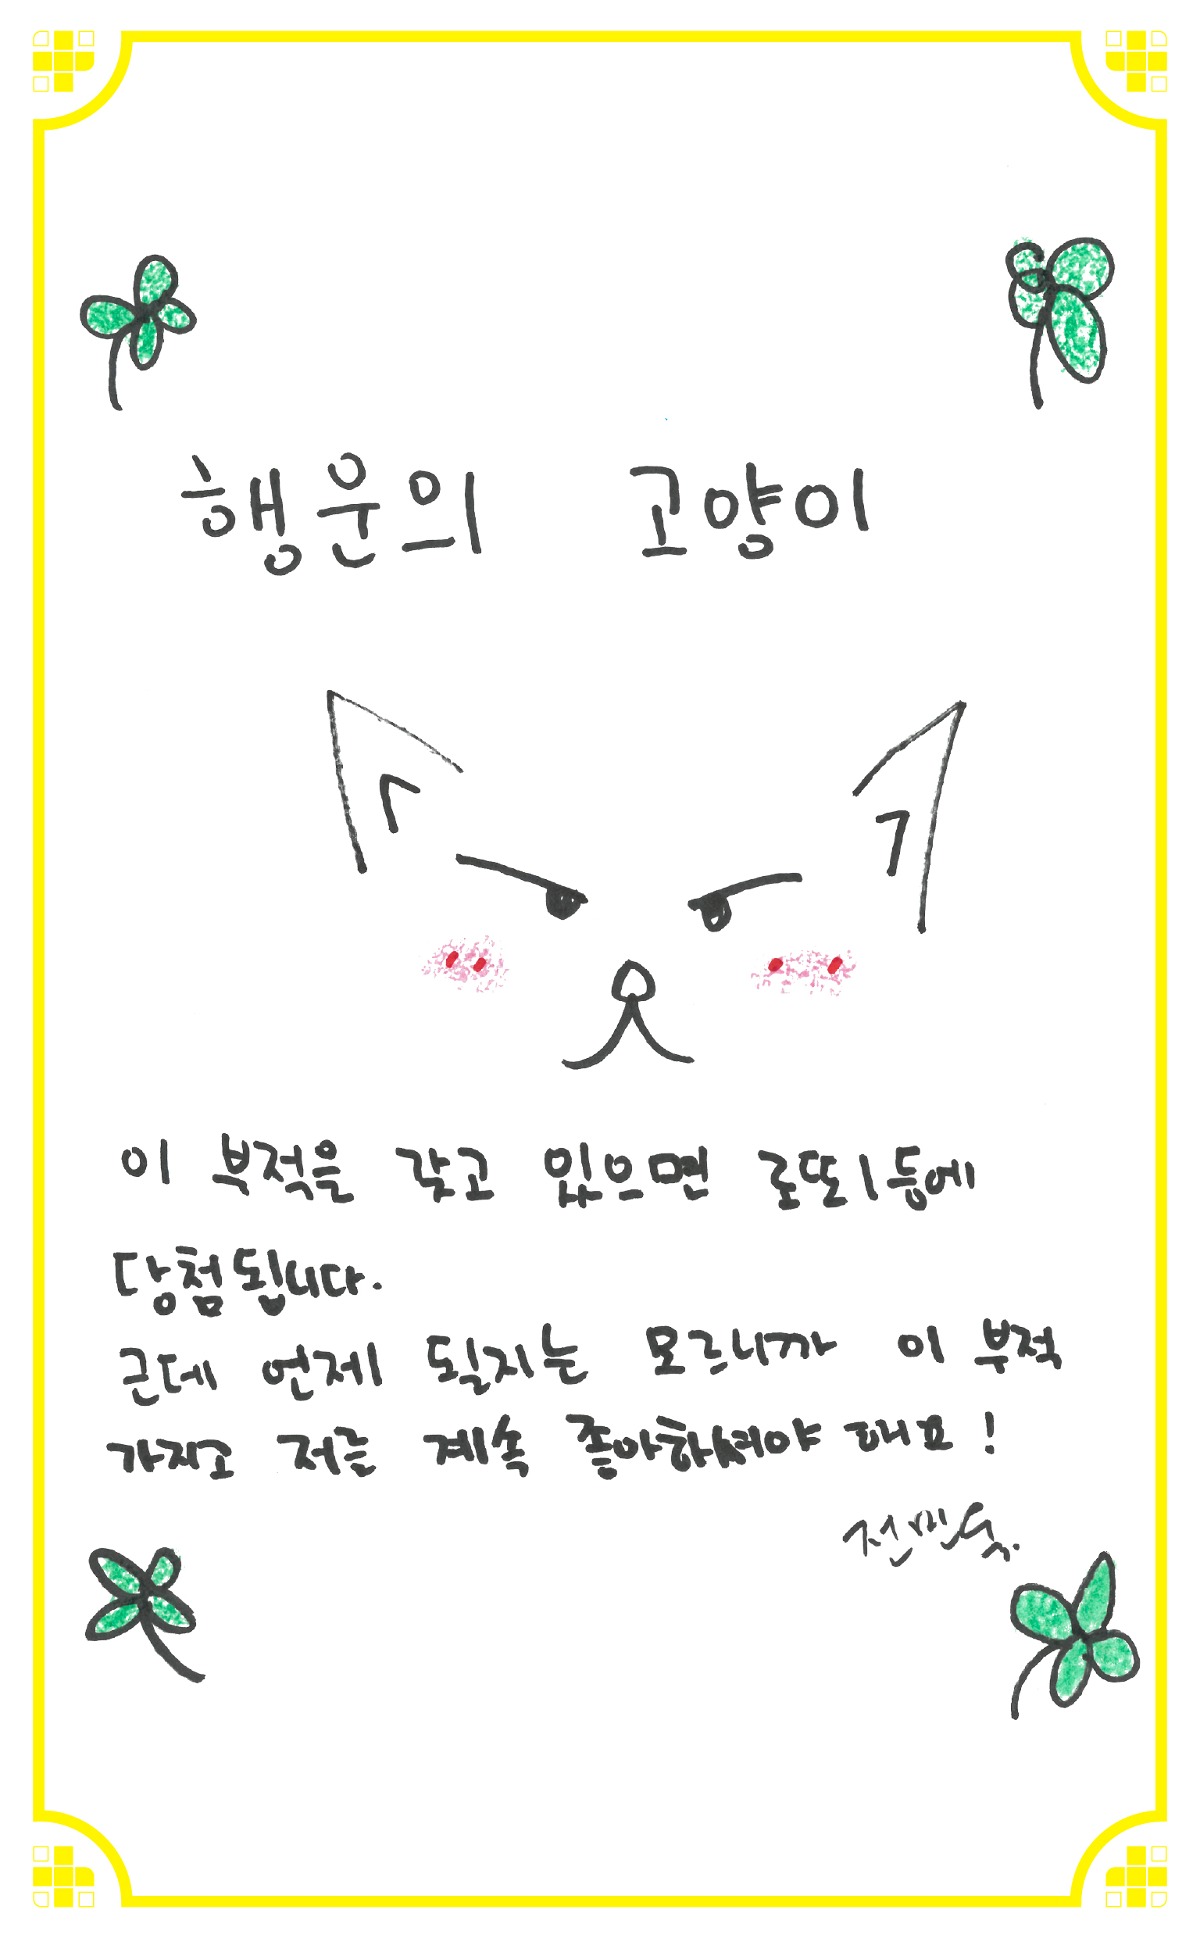 행운의 고양이
이 부적을 갖고 있으면 로또1등에
당첨됩니다.
근데 언제 될지는 모르니까 이 부적
가지고 저를 계속 좋아하셔야 돼요!
전민욱.